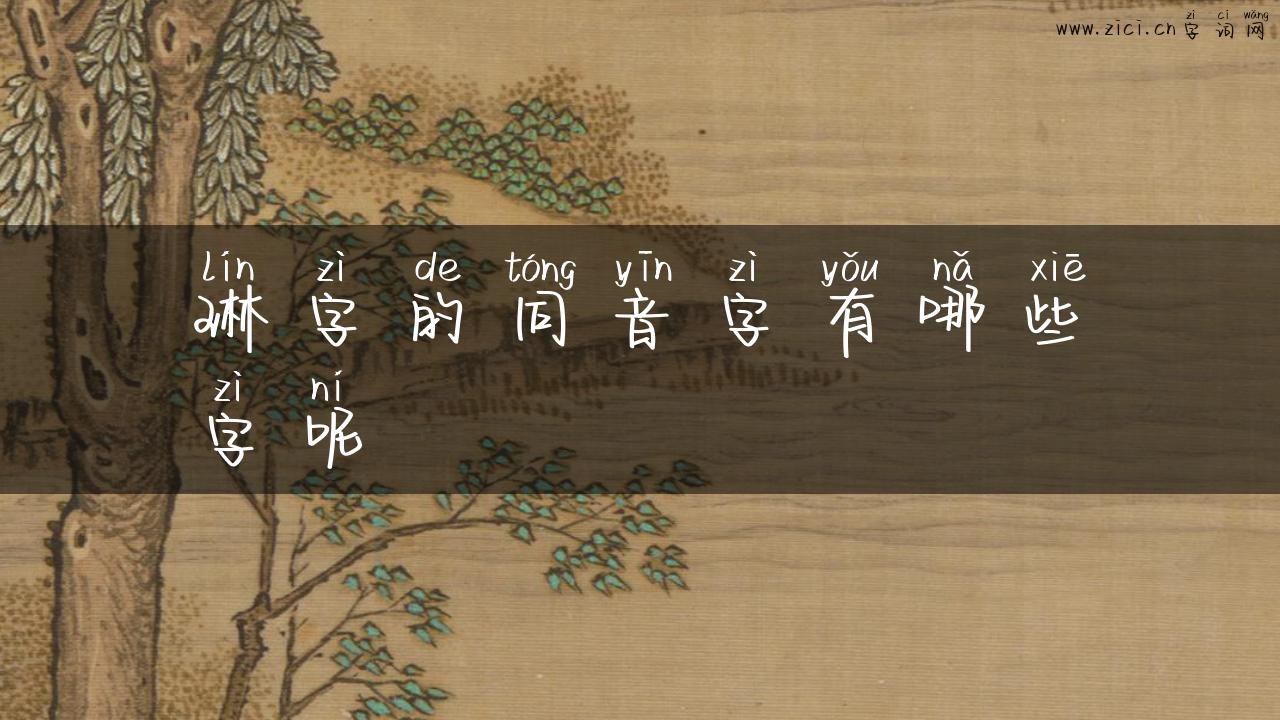 zì cí wǎng
www.zici.cn 字词网
lín zì de tóng yīn zì yǒu nǎ xiē
琳字的同音字有哪些
zì ní
字呢